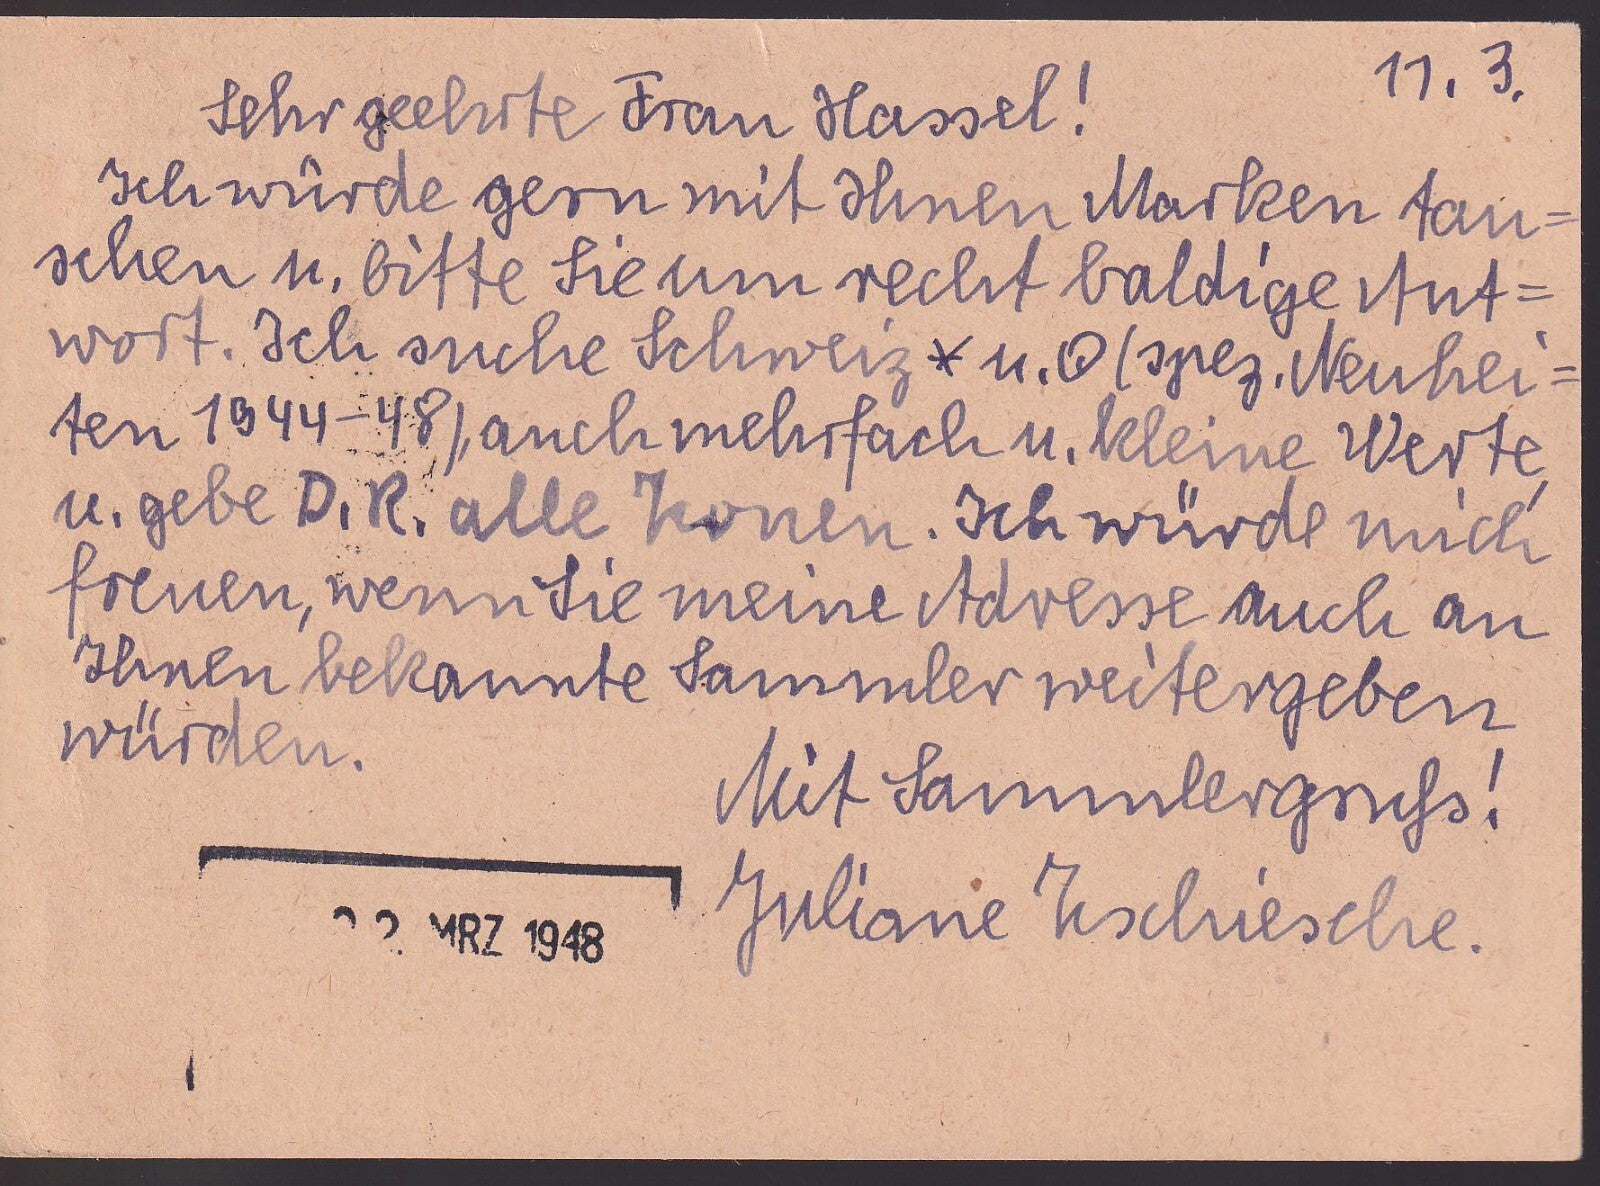 11. 3.
Sehr geehrte Frau Hassel!
Ich würde gern mit Ihnen Marken tau=
schen u. bitte Sie um recht baldige Ant=
wort. Ich suche Schweiz * u. O (spez. Neuhei=
ten 1944-48), auch mehrfach u. kleine Werte
u. gebe D.R. alle Zonen. Ich würde mich
freuen, wenn Sie meine Adresse auch an
Ihnen bekannte Sammler weitergeben
würden.
Mit Sammlergruß!
Juliane Zschiesche.
MRZ 1948